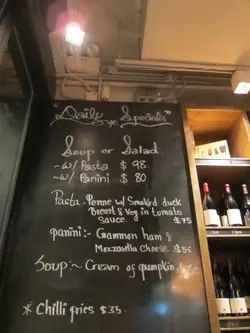 "Daily Specials"
Soup or Salad.
~w/ Pasta $ 98.
~w/ Panini $ 80
Pasta. Penne w/ Smoked duck
Breast & Veg in tomato
Sauce $75
panini:- Gammon ham &
Mozzarella Cheese. $56
Soup:~ Cream of qumpkin
* Chilli fries $35.